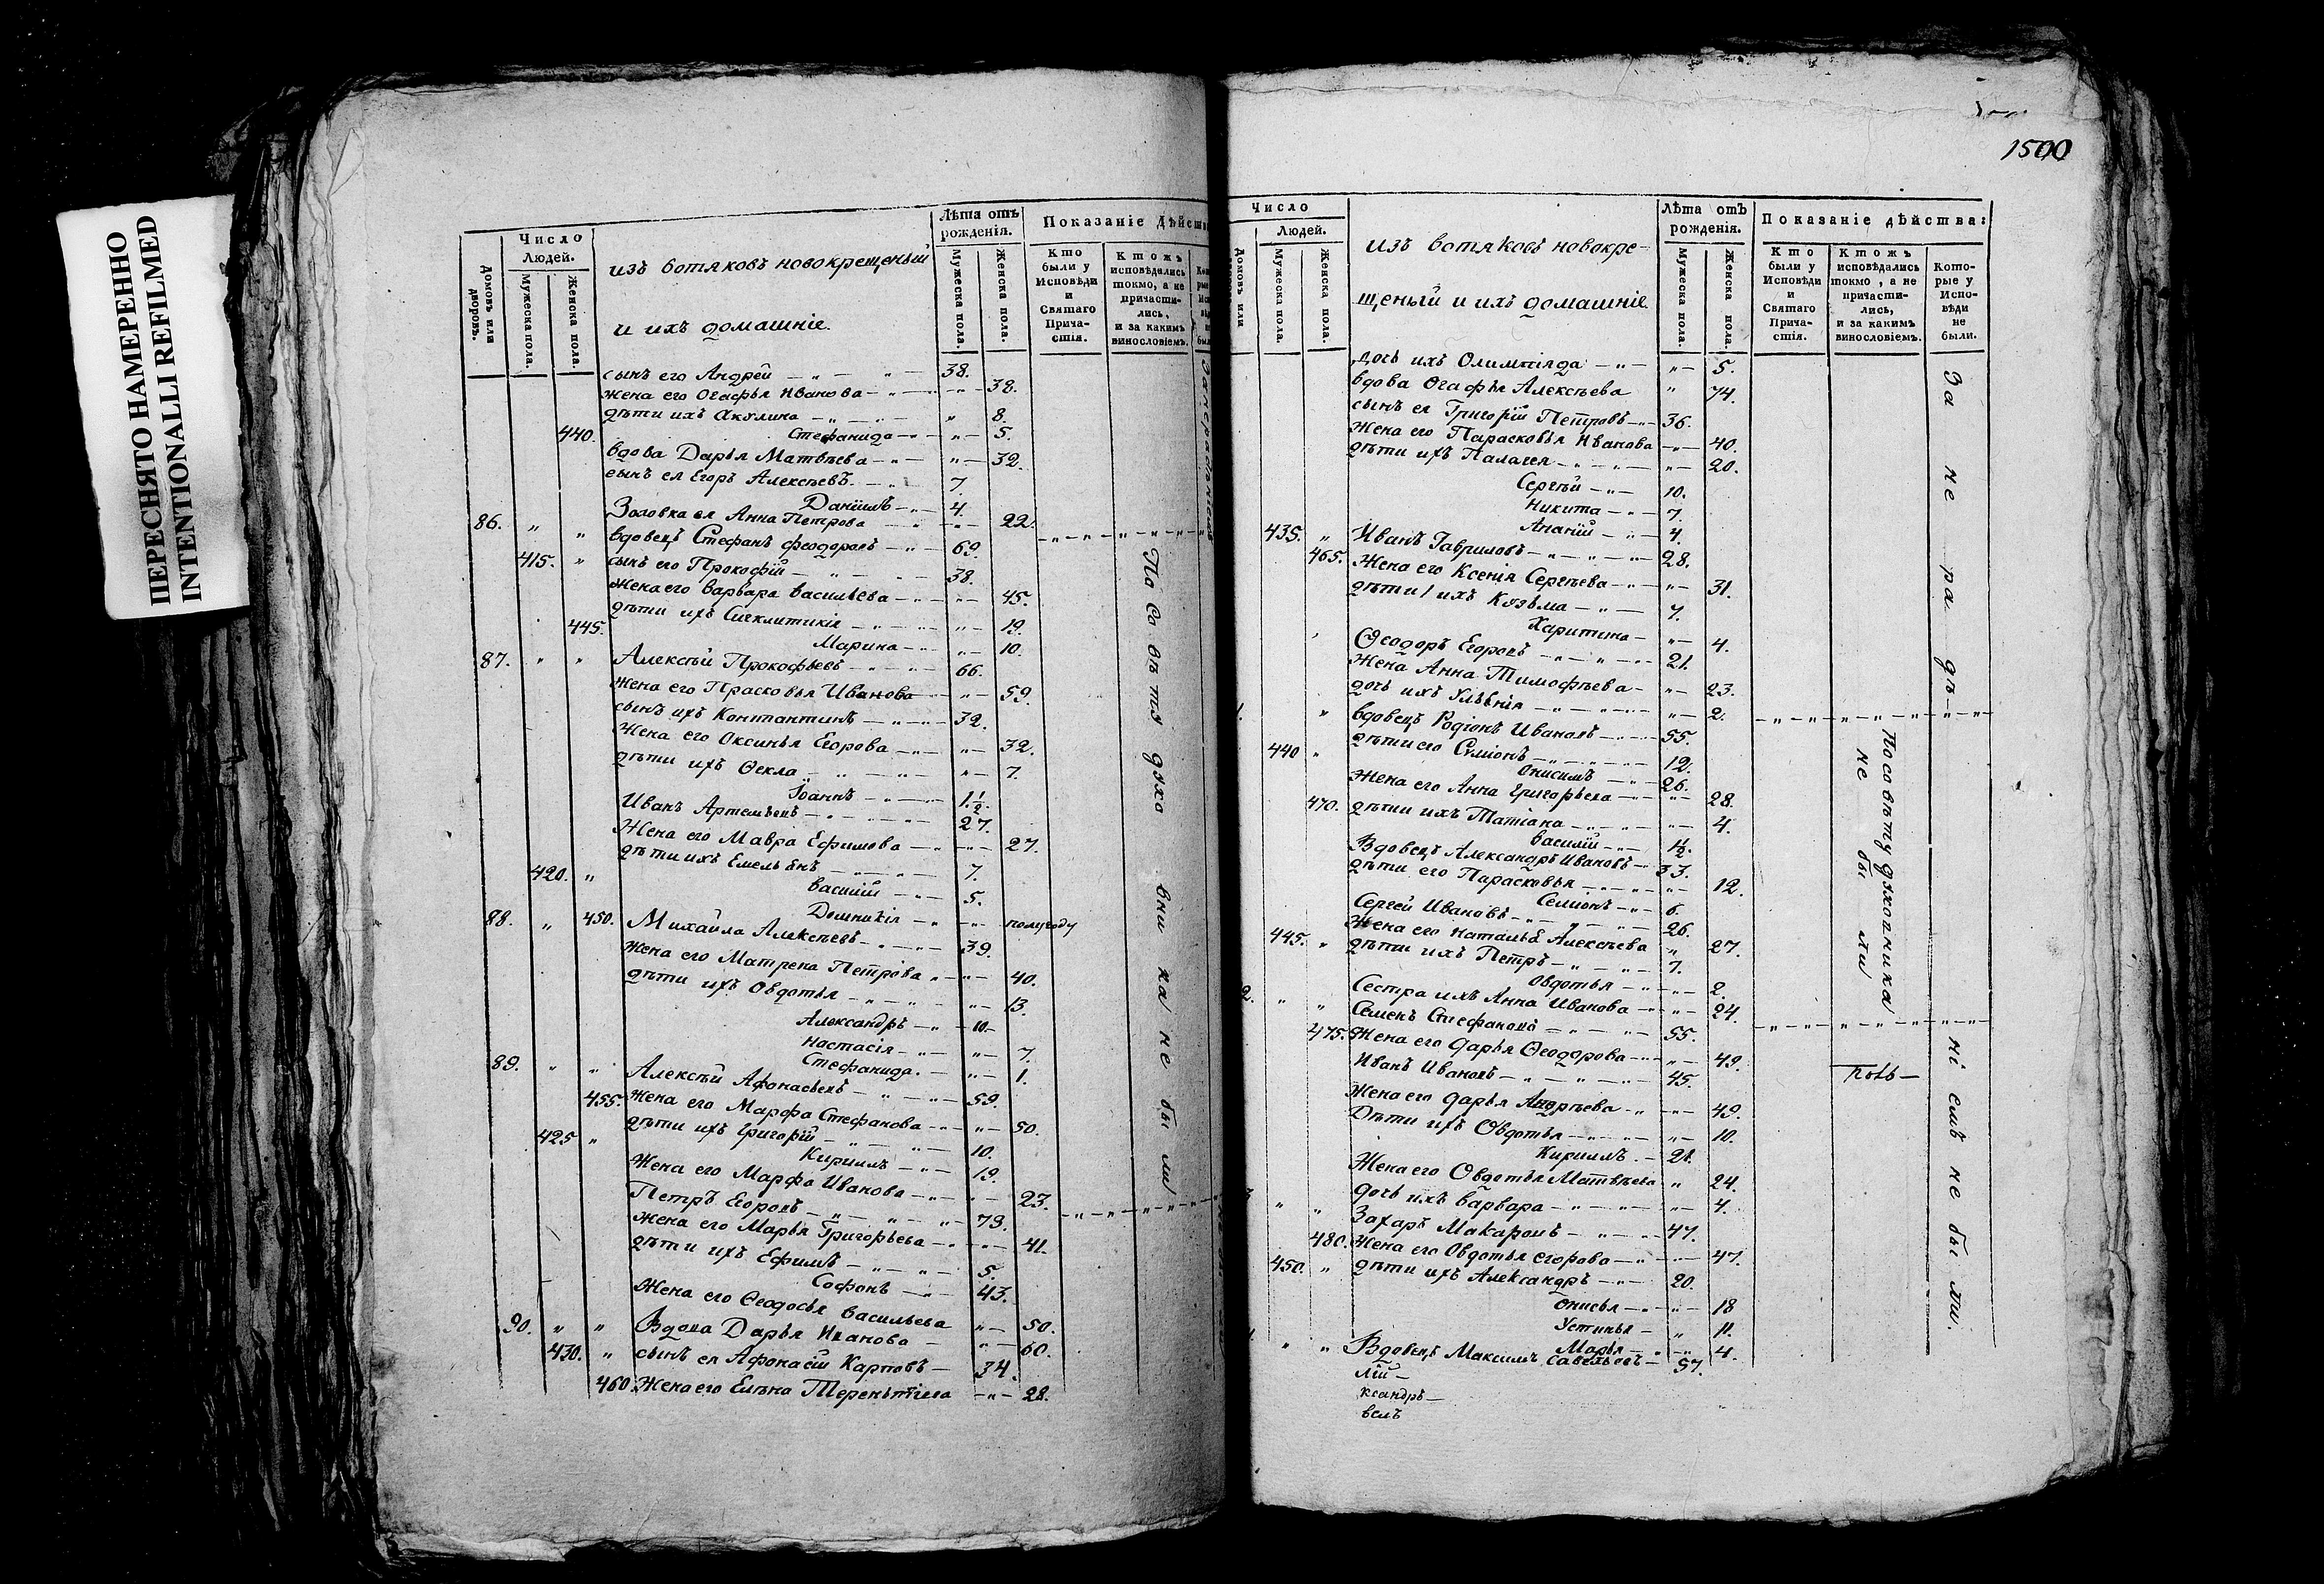 ПЕРЕСНЯТО НАМЕРЕННО
INTENTIONALLI REFILMED
Число Людей.
Домовъ или дворовъ.
Мужеска пола.
Женска пола.
изъ вотяковъ новокрещеный
и ихъ домашніе
Лѣта отъ рожденія.
Мужеска пола.
Женска пола.
Показаніе Дѣйств
Кто были у Исповѣди и Святаго Причастія.
Ктожъ исповѣдались токмо, а не причастились, и за какимъ винословіемъ.
сынъ его Андрей 38.
жена его Огафья Иванова 38.
дѣти ихъ Акулина 8.
440. Стефанида 5.
вдова Дарья Матвѣева 32.
сынъ ея Егоръ Алексѣевъ 7.
Даніилъ 4.
Золовка ея Анна Петрова 22.
86. " " вдовецъ Стефанъ Феодоровъ 69.
415. " сынъ его Прокофій 38.
жена его Варвара Васильева 45.
дѣти ихъ Сигклитикія 19.
445. Марина 10.
87. " " Алексѣй Прокофьевъ 66.
жена его Прасковья Иванова 59.
сынъ ихъ Контантинъ 32.
Жена его Оксинья Егорова 32.
дѣти ихъ Ѳекла 7.
Іоаннъ 1 1/2.
Иванъ Артемьевъ 27.
Жена его Мавра Ефимова 27.
дѣти ихъ Емельянъ 7.
420. " Василій 5.
Домникія полугоду
88. " 450. Михайла Алексѣевъ 39.
жена его Матрена Петрова 40.
дѣти ихъ Овдотья 13.
Александръ 10
Настасія 7.
Стефанида 1.
89. " " Алексѣй Афонасьевъ 59.
455. жена его Марфа Стефанова 50.
дѣти ихъ Григорій 10.
425 " Кириллъ 19.
Жена его Марфа Иванова 23.
Петръ Егоровъ 79.
жена его Марья Григорьева 41.
дѣти ихъ Ефимъ 5.
Софонъ 43.
Жена его Ѳеодосья Васильева 50.
90. " " Вдова Дарья Иванова 60.
430. " сынъ ея Афонасій Карповъ 34.
460. Жена его Елена Терентіева 28.
По совѣту духовника не были
1500
Число Людей.
Домовъ или
Мужеска пола.
Женска пола.
изъ вотяковъ новокре-
щеный и ихъ домашніе
Лѣта отъ рожденія.
Мужеска пола.
Женска пола.
Показаніе дѣйства:
Кто были у Исповѣди и Святаго Причастія.
Ктожъ исповѣдались токмо, а не причастились, и за какимъ винословіемъ.
Которые у Исповѣди не были.
дочь ихъ Олимпіяда 5.
вдова Огафья Алексѣева 74.
сынъ ея Григорій Петровъ 36.
жена его Парасковья Иванова 40.
дѣти ихъ Палагея 20.
Сергѣй 10.
Никита 7.
Ананій 4.
435. " Иванъ Гавриловъ 28.
465. Жена его Ксенія Сергѣева 31.
дѣти ихъ Козьма 7.
Харитина 4.
Ѳеодоръ Егоровъ 21.
Жена Анна Тимофѣева 23.
дочь ихъ Ульянія 2.
" вдовецъ Родіонъ Ивановъ 55.
440 " дѣти его Симіонъ 12.
Онисимъ 26.
Жена его Анна Григорьева 28.
470. дѣти ихъ Татіана 4.
Василій 1 1/2.
Вдовецъ Александръ Ивановъ 33.
дѣти его Парасковья 12.
Семіонъ 6.
Сергей Ивановъ 26.
Жена его Наталья Алексѣева 27.
445. " дѣти ихъ Петръ 7.
Овдотья 2.
Сестра ихъ Анна Иванова 24.
2. " " Семенъ Стефановъ 55.
475. Жена его Дарья Ѳеодорова 49.
Иванъ Ивановъ 45.
Жена его Дарья Андрѣева 49.
Дѣти ихъ Овдотья 10.
Кириллъ 21.
Жена его Овдотья Матвѣева 24.
дочь ихъ Варвара 4.
" " Захаръ Макаровъ 47.
480. Жена его Овдотья Егорова 47.
450. " дѣти ихъ Александръ 20.
Онисья 18
Устинья 11.
Марья 4.
" " Вдовецъ Максимъ Савельевъ 57.
лій
ксандръ
велъ
За не ра дѣ
По совѣту духовника не были
ніемъ не были.